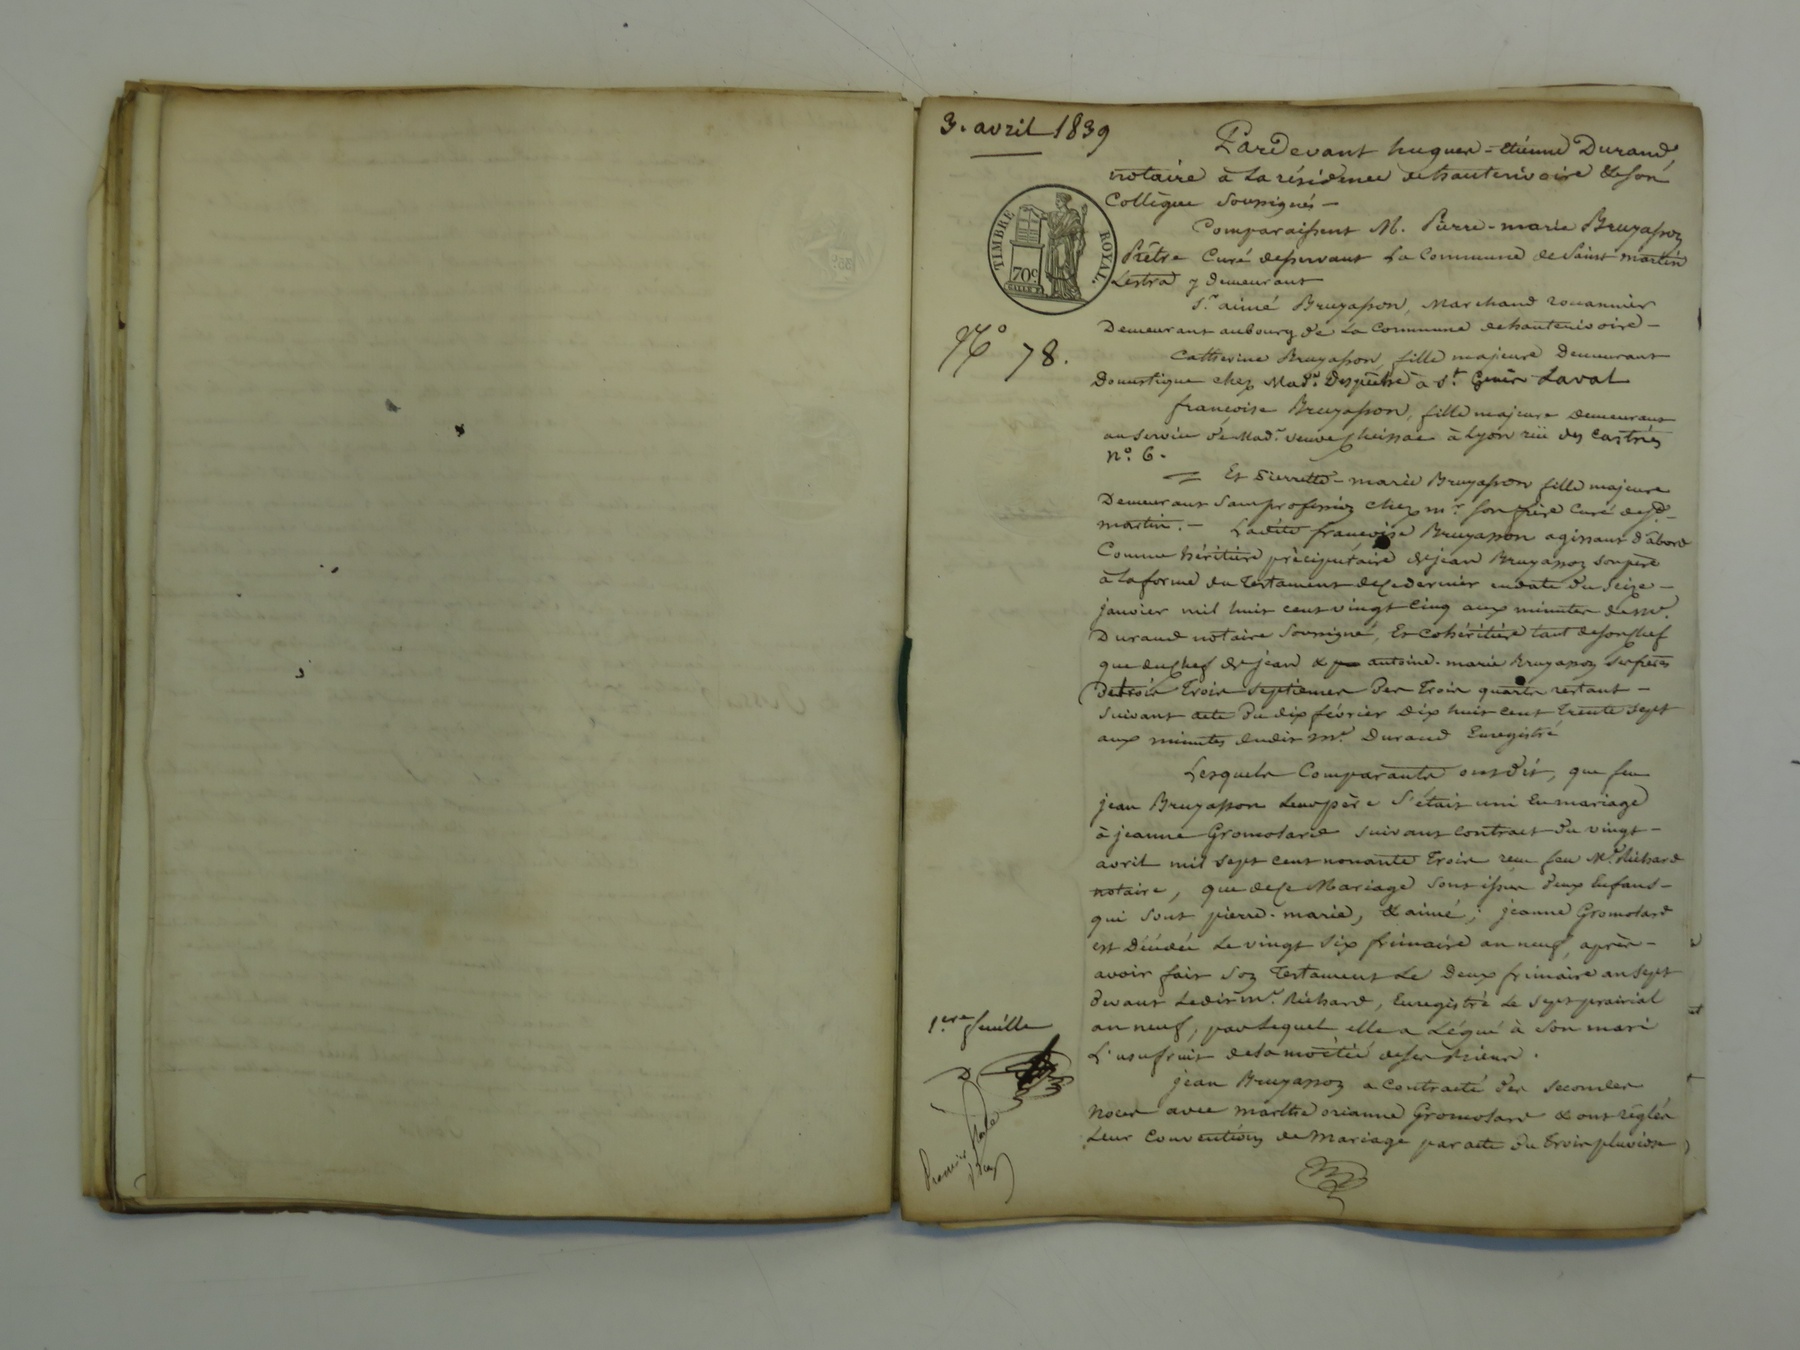 3. avril 1839
TIMBRE ROYAL
70c
N° 78.
Pardevant hugues-étienne Durand
notaire à la résidence de hauterivoire & son
Collègue soussignés -
Comparaissent M. Pierre-marie Bruyasson
Prêtre Curé desservant la Commune de Saint martin
Lestra y demeurant
Sr. aimé Bruyasson, Marchand rouannier
Demeurant au bourg de la Commune de hauterivoire -
Catherine Bruyasson, fille majeure Demeurant
Domestique chez Made. à St. Genis-Laval
françoise Bruyasson, fille majeure demeurant
au service de Made. veuve à Lyon rue des Castries
n°. 6.
= Et Pierrette-marie Bruyasson fille majeure
Demeurant sans profession chez mr. son frère Curé de St.
martin. - Ladite françoise Bruyasson agissant d'abord
Comme héritière préciputaire de jean Bruyasson son père
à la forme du Testament de ce dernier en date du seize -
janvier mil huit cent vingt Cinq aux minutes de Me.
Durand notaire soussigné, Et cohéritière tant de son chef
que du chef de jean & antoine-marie Bruyasson ses frères
De trois Trois septièmes des Trois quarts restant -
suivant acte du dix février dix huit cent trente sept
aux minutes dudit Me. Durand Enregistré
Lesquels Comparants ont dit, que feu
jean Bruyasson leur père s'était uni en mariage
à jeanne Gromolard suivant contrat du vingt -
avril mil sept cent nonante Trois reçu feu Me. Richard
notaire, que de ce Mariage sont issus deux Enfans -
qui sont pierre-marie, & aimé; jeanne Gromolard
est Décédée le vingt six frimaire an neuf, après -
avoir fait son Testament le Deux frimaire an sept
devant ledit Me. Richard, Enregistré le sept prairial
an neuf, par lequel elle a Légué à son mari
L'usufruit de la moitié de ses Biens.
jean Bruyasson a contracté des secondes
Noces avec marthe Gromolard & ont réglés
Leur Conventions de Mariage par acte du trois pluviose
1.ere feuille
Premier Rôle